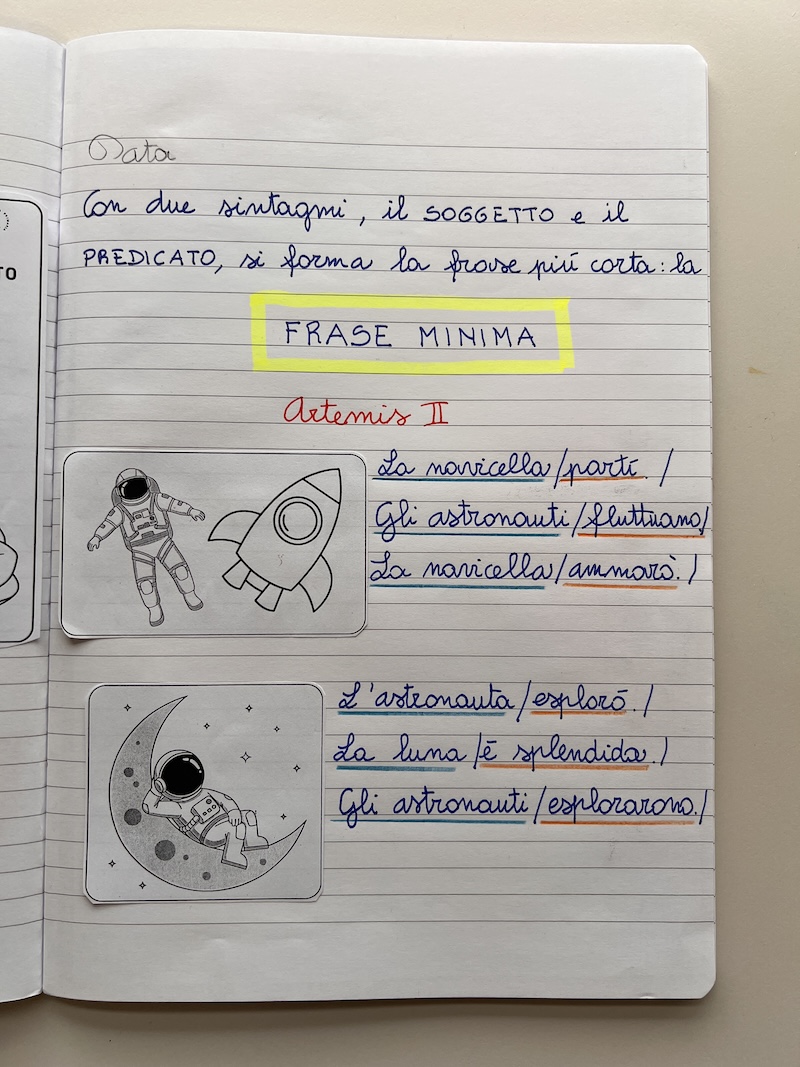 TO
Data
Con due sintagmi, il SOGGETTO e il
PREDICATO, si forma la frase più corta: la
FRASE MINIMA
Artemis II
La navicella/partì. /
Gli astronauti/fluttuano/
La navicella/ammarò. /
L'astronauta/esplorò. /
La luna/è splendida. /
Gli astronauti/esplorarono. /